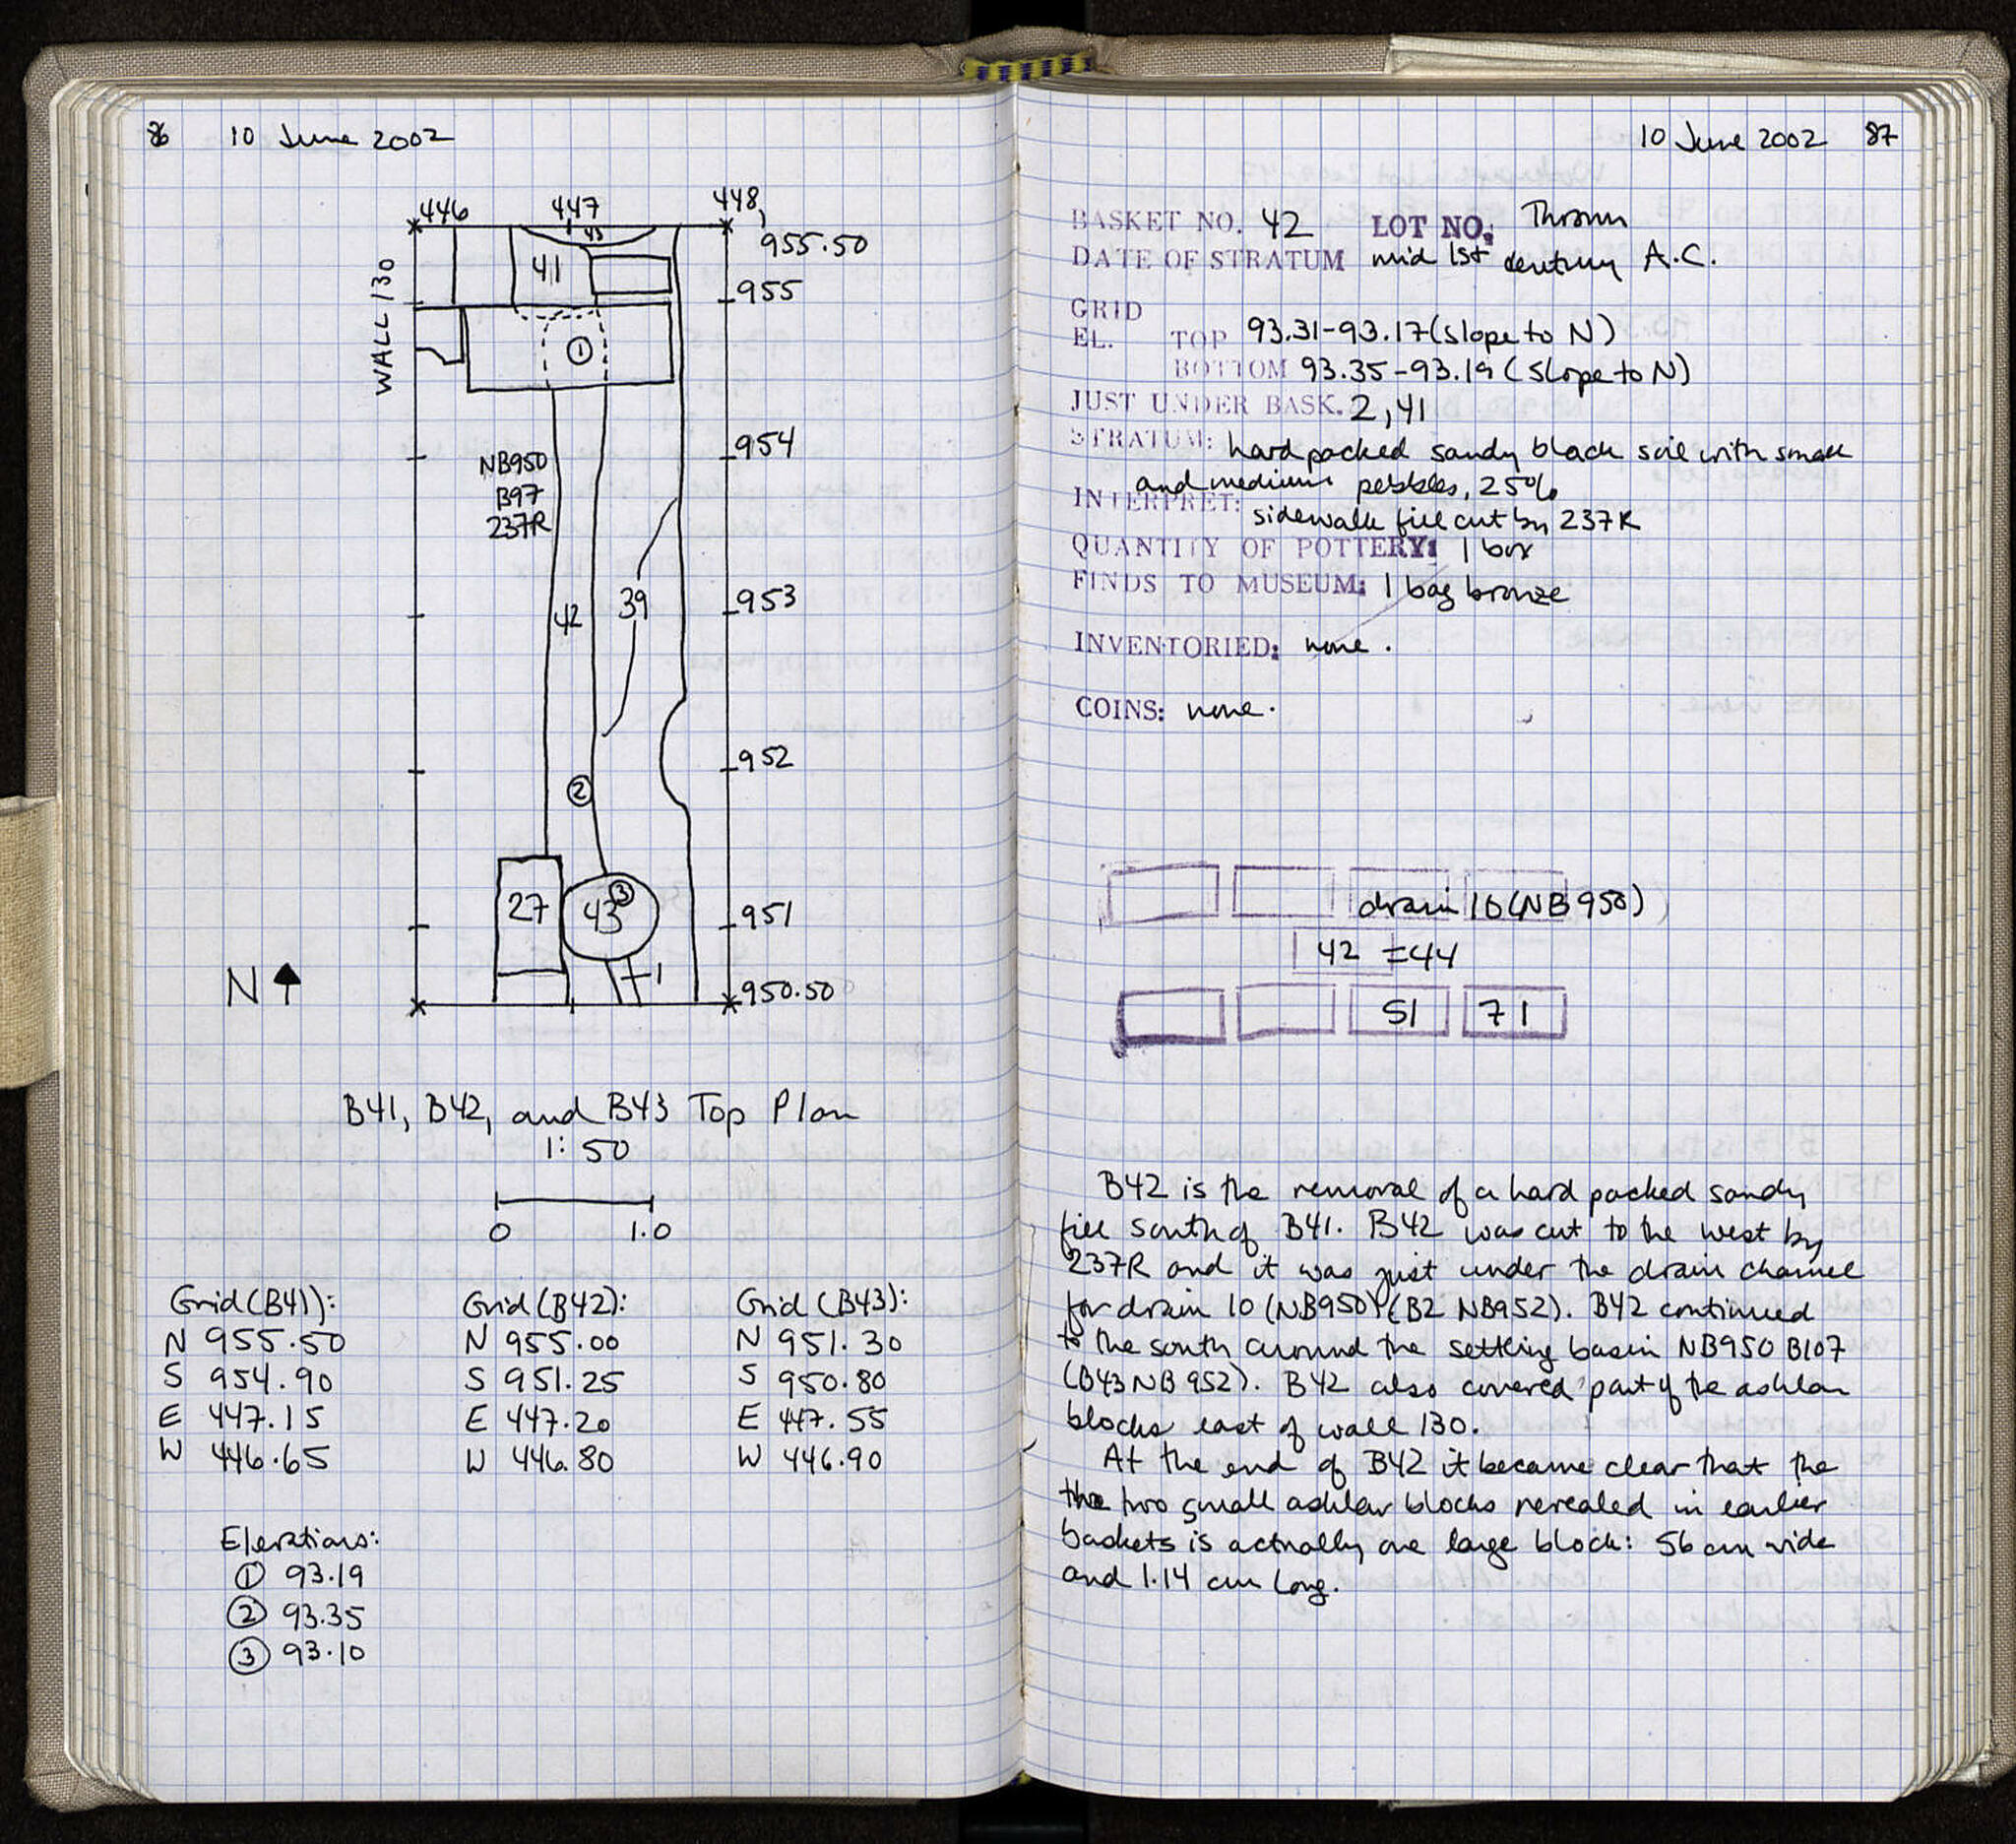 86 10 June 2002
446 447 448
43
955.50
41
955
WALL 130
1
954
NB950
B97
237R
39
953
42
952
2
27
3
43
951
1
N
950.50
B41, B42, and B43 Top Plan
1:50
0 1.0
Grid (B41): Grid (B42): Grid (B43):
N 955.50 N 955.00 N 951.30
S 954.90 S 951.25 S 950.80
E 447.15 E 447.20 E 447.55
W 446.65 W 446.80 W 446.90
Elevations:
① 93.19
② 93.35
③ 93.10
10 June 2002 87
BASKET NO. 42 LOT NO. Thrown
DATE OF STRATUM mid 1st century A.C.
GRID
EL. TOP 93.31-93.17 (slope to N)
BOTTOM 93.35-93.19 (slope to N)
JUST UNDER BASK. 2, 41
STRATUM: hard packed sandy black soil with small
and medium pebbles, 25%
INTERPRET: sidewalk fill cut by 237R
QUANTITY OF POTTERY: 1 box
FINDS TO MUSEUM: 1 bag bronze
INVENTORIED: none.
COINS: none.
drain 10 (NB950)
42 =44
51 71
B42 is the removal of a hard packed sandy
fill south of B41. B42 was cut to the west by
237R and it was just under the drain channel
for drain 10 (NB950) (B2 NB952). B42 continued
to the south around the settling basin NB950 B107
(B43 NB952). B42 also covered part of the ashlar
blocks east of wall 130.
At the end of B42 it became clear that the
the two small ashlar blocks revealed in earlier
baskets is actually one large block: 56 cm wide
and 1.14 cm long.